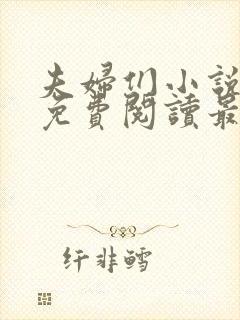 夫婦们小説
免費閱讀最
纤非鳕